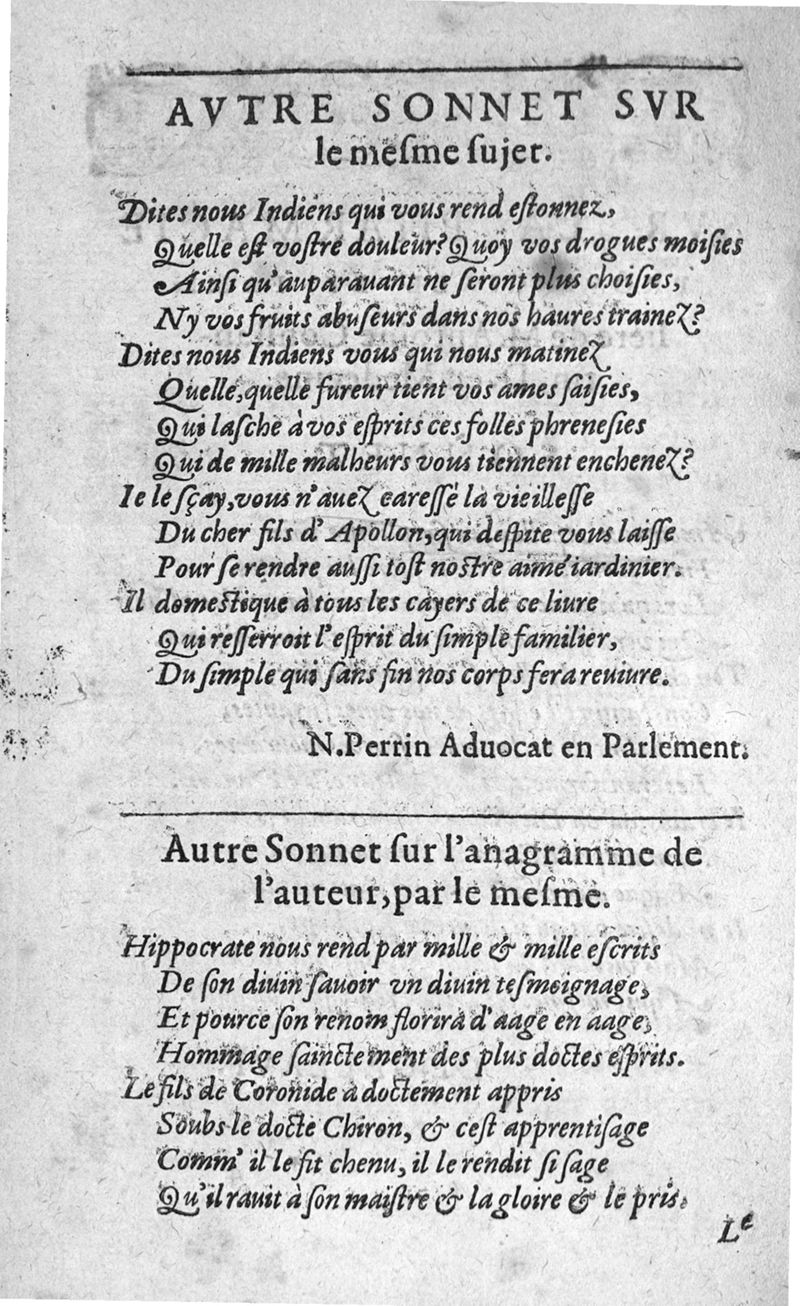 AVTRE SONNET SVR
le meſme ſujet.
Dites nous Indiens qui vous rend eſtonnez,
Quelle eſt voſtre douleur? Quoy vos drogues moiſies
Ainſi qu'auparauant ne ſeront plus choiſies,
Ny vos fruits abuſeurs dans nos haures trainez?
Dites nous Indiens vous qui nous matinez
Quelle, quelle fureur tient vos ames ſaiſies,
Qui laſche à vos eſprits ces folles phreneſies
Qui de mille malheurs vous tiennent enchenez?
Ie le ſçay, vous n'auez careſſé la vieilleſſe
Du cher fils d'Apollon, qui deſpite vous laiſſe
Pour ſe rendre auſſi toſt noſtre aimé iardinier.
Il domeſtique à tous les cayers de ce liure
Qui reſſerroit l'eſprit du ſimple familier,
Du ſimple qui ſans fin nos corps fera reuiure.
N. Perrin Aduocat en Parlement.
Autre Sonnet ſur l'anagramme de
l'auteur, par le meſme.
Hippocrate nous rend par mille & mille eſcrits
De ſon diuin ſauoir vn diuin teſmoignage,
Et pource ſon renom florira d'aage en aage,
Hommage ſainctement des plus doctes eſprits.
Le fils de Coronide a doctement appris
Soubs le docte Chiron, & ceſt apprentiſage
Comm' il le fit chenu, il le rendit ſi ſage
Qu'il rauit à ſon maiſtre & la gloire & le pris.
Le